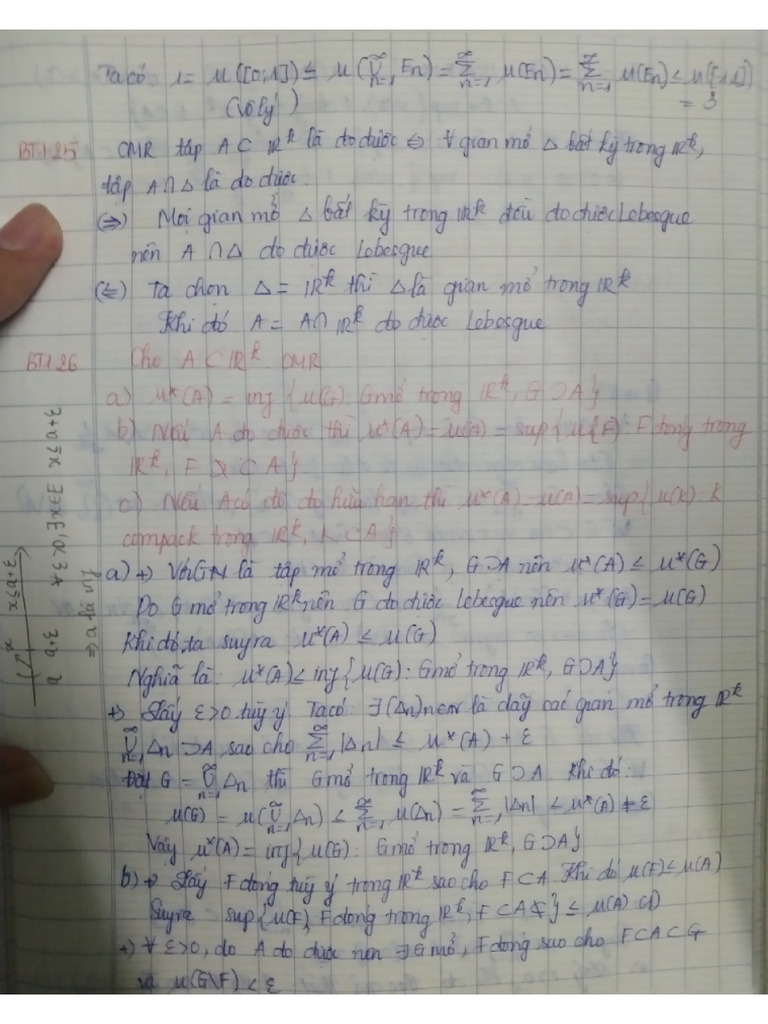 Ta có 1 = μ([0;1]) ≤ μ(⋃_{n=1}^∞ En) = ∑_{n=1}^∞ μ(En) = ∑_{n=1}^∞ μ(En) ≤ μ([-1;2])
(Vô lý) = 3
BT1.25 CMR tập A ⊂ ℝ^k là đo được ⇔ ∀ gian mở Δ bất kỳ trong ℝ^k,
tập A∩Δ là đo được.
(⇒) Mọi gian mở Δ bất kỳ trong ℝ^k đều đo được Lebesgue
nên A∩Δ đo được Lebesgue
(⇐) Ta chọn Δ = ℝ^k thì Δ là gian mở trong ℝ^k
Khi đó A = A∩ℝ^k đo được Lebesgue
BT1.26 Cho A ⊂ ℝ^k. CMR
a) μ*(A) = inf {μ(G): G mở trong ℝ^k, G ⊃ A}
b) Nếu A đo được thì μ*(A) = μ(A) = sup{μ(F): F đóng trong
ℝ^k, F ⊂ A}
c) Nếu A có độ đo hữu hạn thì μ*(A) = μ(A) = sup{μ(K): K
compack trong ℝ^k, K ⊂ A}
a) +) Với G là tập mở trong ℝ^k, G ⊃ A nên μ*(A) ≤ μ*(G)
Do G mở trong ℝ^k nên G đo được Lebesgue nên μ*(G) = μ(G)
Khi đó ta suy ra μ*(A) ≤ μ(G)
Nghĩa là: μ*(A) ≤ inf{μ(G): G mở trong ℝ^k, G ⊃ A}
+) Lấy ε>0 tuỳ ý. Ta có ∃(Δn)n∈ℕ là dãy các gian mở trong ℝ^k
⋃_{n=1}^∞ Δn ⊃ A sao cho ∑_{n=1}^∞ |Δn| ≤ μ*(A) + ε
Đặt G = ⋃_{n=1}^∞ Δn thì G mở trong ℝ^k và G ⊃ A. Khi đó:
μ(G) = μ(⋃_{n=1}^∞ Δn) ≤ ∑_{n=1}^∞ μ(Δn) = ∑_{n=1}^∞ |Δn| ≤ μ*(A) + ε
Vậy μ*(A) = inf{μ(G): G mở trong ℝ^k, G ⊃ A}
b) +) Lấy F đóng tuỳ ý trong ℝ^k sao cho F ⊂ A. Khi đó μ(F) ≤ μ(A)
Suy ra sup{μ(F), F đóng trong ℝ^k, F ⊂ A} ≤ μ(A) (1)
+) ∀ ε>0, do A đo được nên ∃ G mở, F đóng sao cho F ⊂ A ⊂ G
và μ(G\F) < ε
x ≤ a+ε
a a+ε ∀ε>0, ∃x∈X x ≤ a+ε
⇒ a là inf